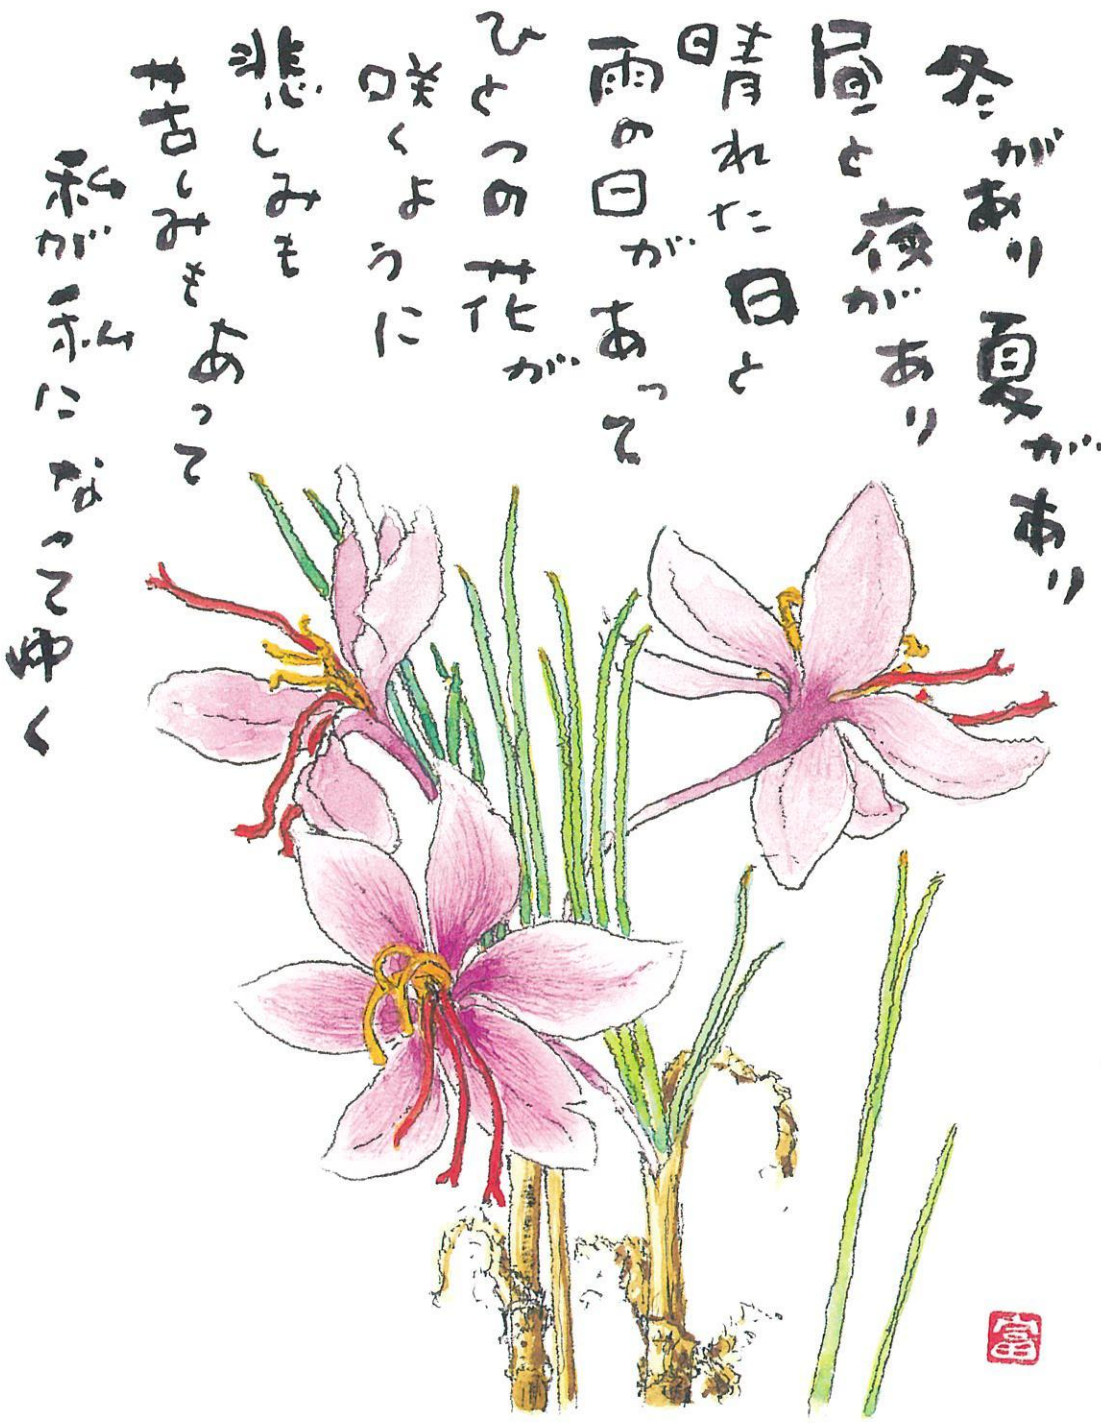 冬があり 夏があり
昼と 夜があり
晴れた日と
雨の日があって
ひとつの花が
咲くように
悲しみも
苦しみもあって
私が私になってゆく
富